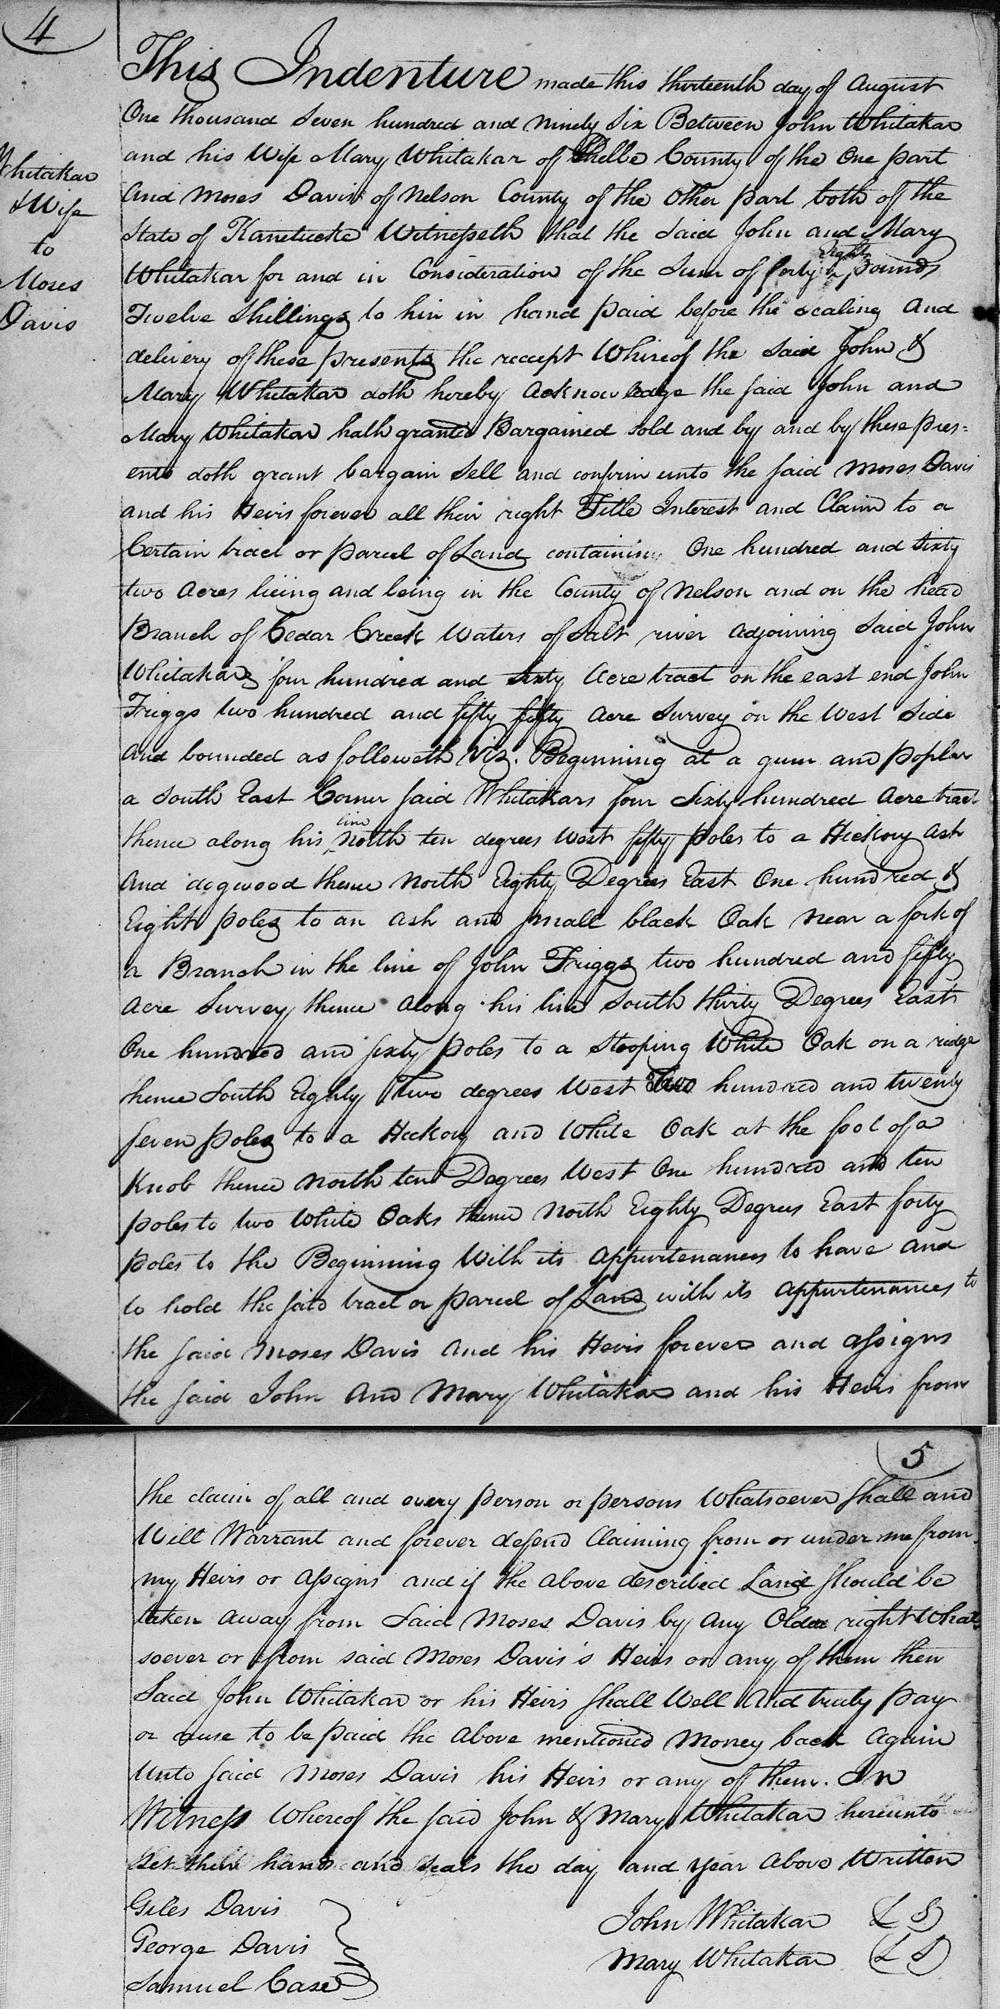 4
This Indenture made this thirteenth day of August
One thousand Seven hundred and ninety Six Between John Whitakar
and his Wife Mary Whitakar of Shelbe County of the One part
And Moses Davis of Nelson County of the Other part both of the
State of Kantucke Witnesseth that the Said John and Mary
Whitakar for and in Consideration of the Sum of forty Eight pounds
Twelve Shillings to him in hand paid before the sealing And
delivery of these presents the receept Whireof the Said John &
Mary Whitakar doth hereby Acknowledge the said John and
Mary Whitakar hath granted Bargained Sold and by and by these pres=
ents doth grant bargain Sell and confirm unto the said Moses Davis
and his Heirs forever all their right Title Interest and Claim to a
Certain tract or parcel of Land containing One hundred and Sixty
two Acres lieing and being in the County of Nelson and on the head
Branch of Cedar Creek Waters of Salt river Adjoining Said John
Whitakars four hundred and Sixty Acre tract on the east end John
Friggs two hundred and fifty fifty Acre Survey on the West Side
And bounded as followeth Viz. Beginning at a gum and poplar
a South East Corner said Whitakars four Sixty hundred Acre tract
thence along his line North ten degrees West fifty poles to a Hickory Ash
And dogwood thence North Eighty Degrees East One hundred &
Eight poles to an ash and small black Oak near a fork of
a Branch in the line of John Friggs two hundred and fifty
Acre Survey thence Along his line South thirty Degrees East
One hundred and sixty poles to a Stooping White Oak on a ridge
thence South Eighty Two degrees West Two hundred and twenty
seven poles to a Hickory and White Oak at the foot of a
Knob thence North ten Degrees West One hundred and ten
poles to two White Oaks thence North Eighty Degrees East forty
poles to the Beginning With its Appurtenances to have and
to hold the said tract or parcel of Land with its Appurtenances to
the said Moses Davis And his Heirs forever and assigns
the said John And Mary Whitakar and his Heirs from
Whitakar
& Wife
to
Moses
Davis
5
the claim of all and every person or persons Whatsoever shall and
Will Warrant and forever defend Claiming from or under me from
my Heirs or assigns and if the above described Land should be
taken Away from Said Moses Davis by Any Older right What
soever or from said Moses Davis's Heirs or any of them then
Said John Whitakar or his Heirs shall Well And truly pay
or cause to be paid the above mentioned Money back Again
Unto said Moses Davis his Heirs or any of them. In
Witness Whereof the said John & Mary Whitakar hereunto
Set their hands and Seals the day and Year Above Written
Giles Davis
George Davis
Samuel Case
John Whitakar (L S)
Mary Whitakar (L S)